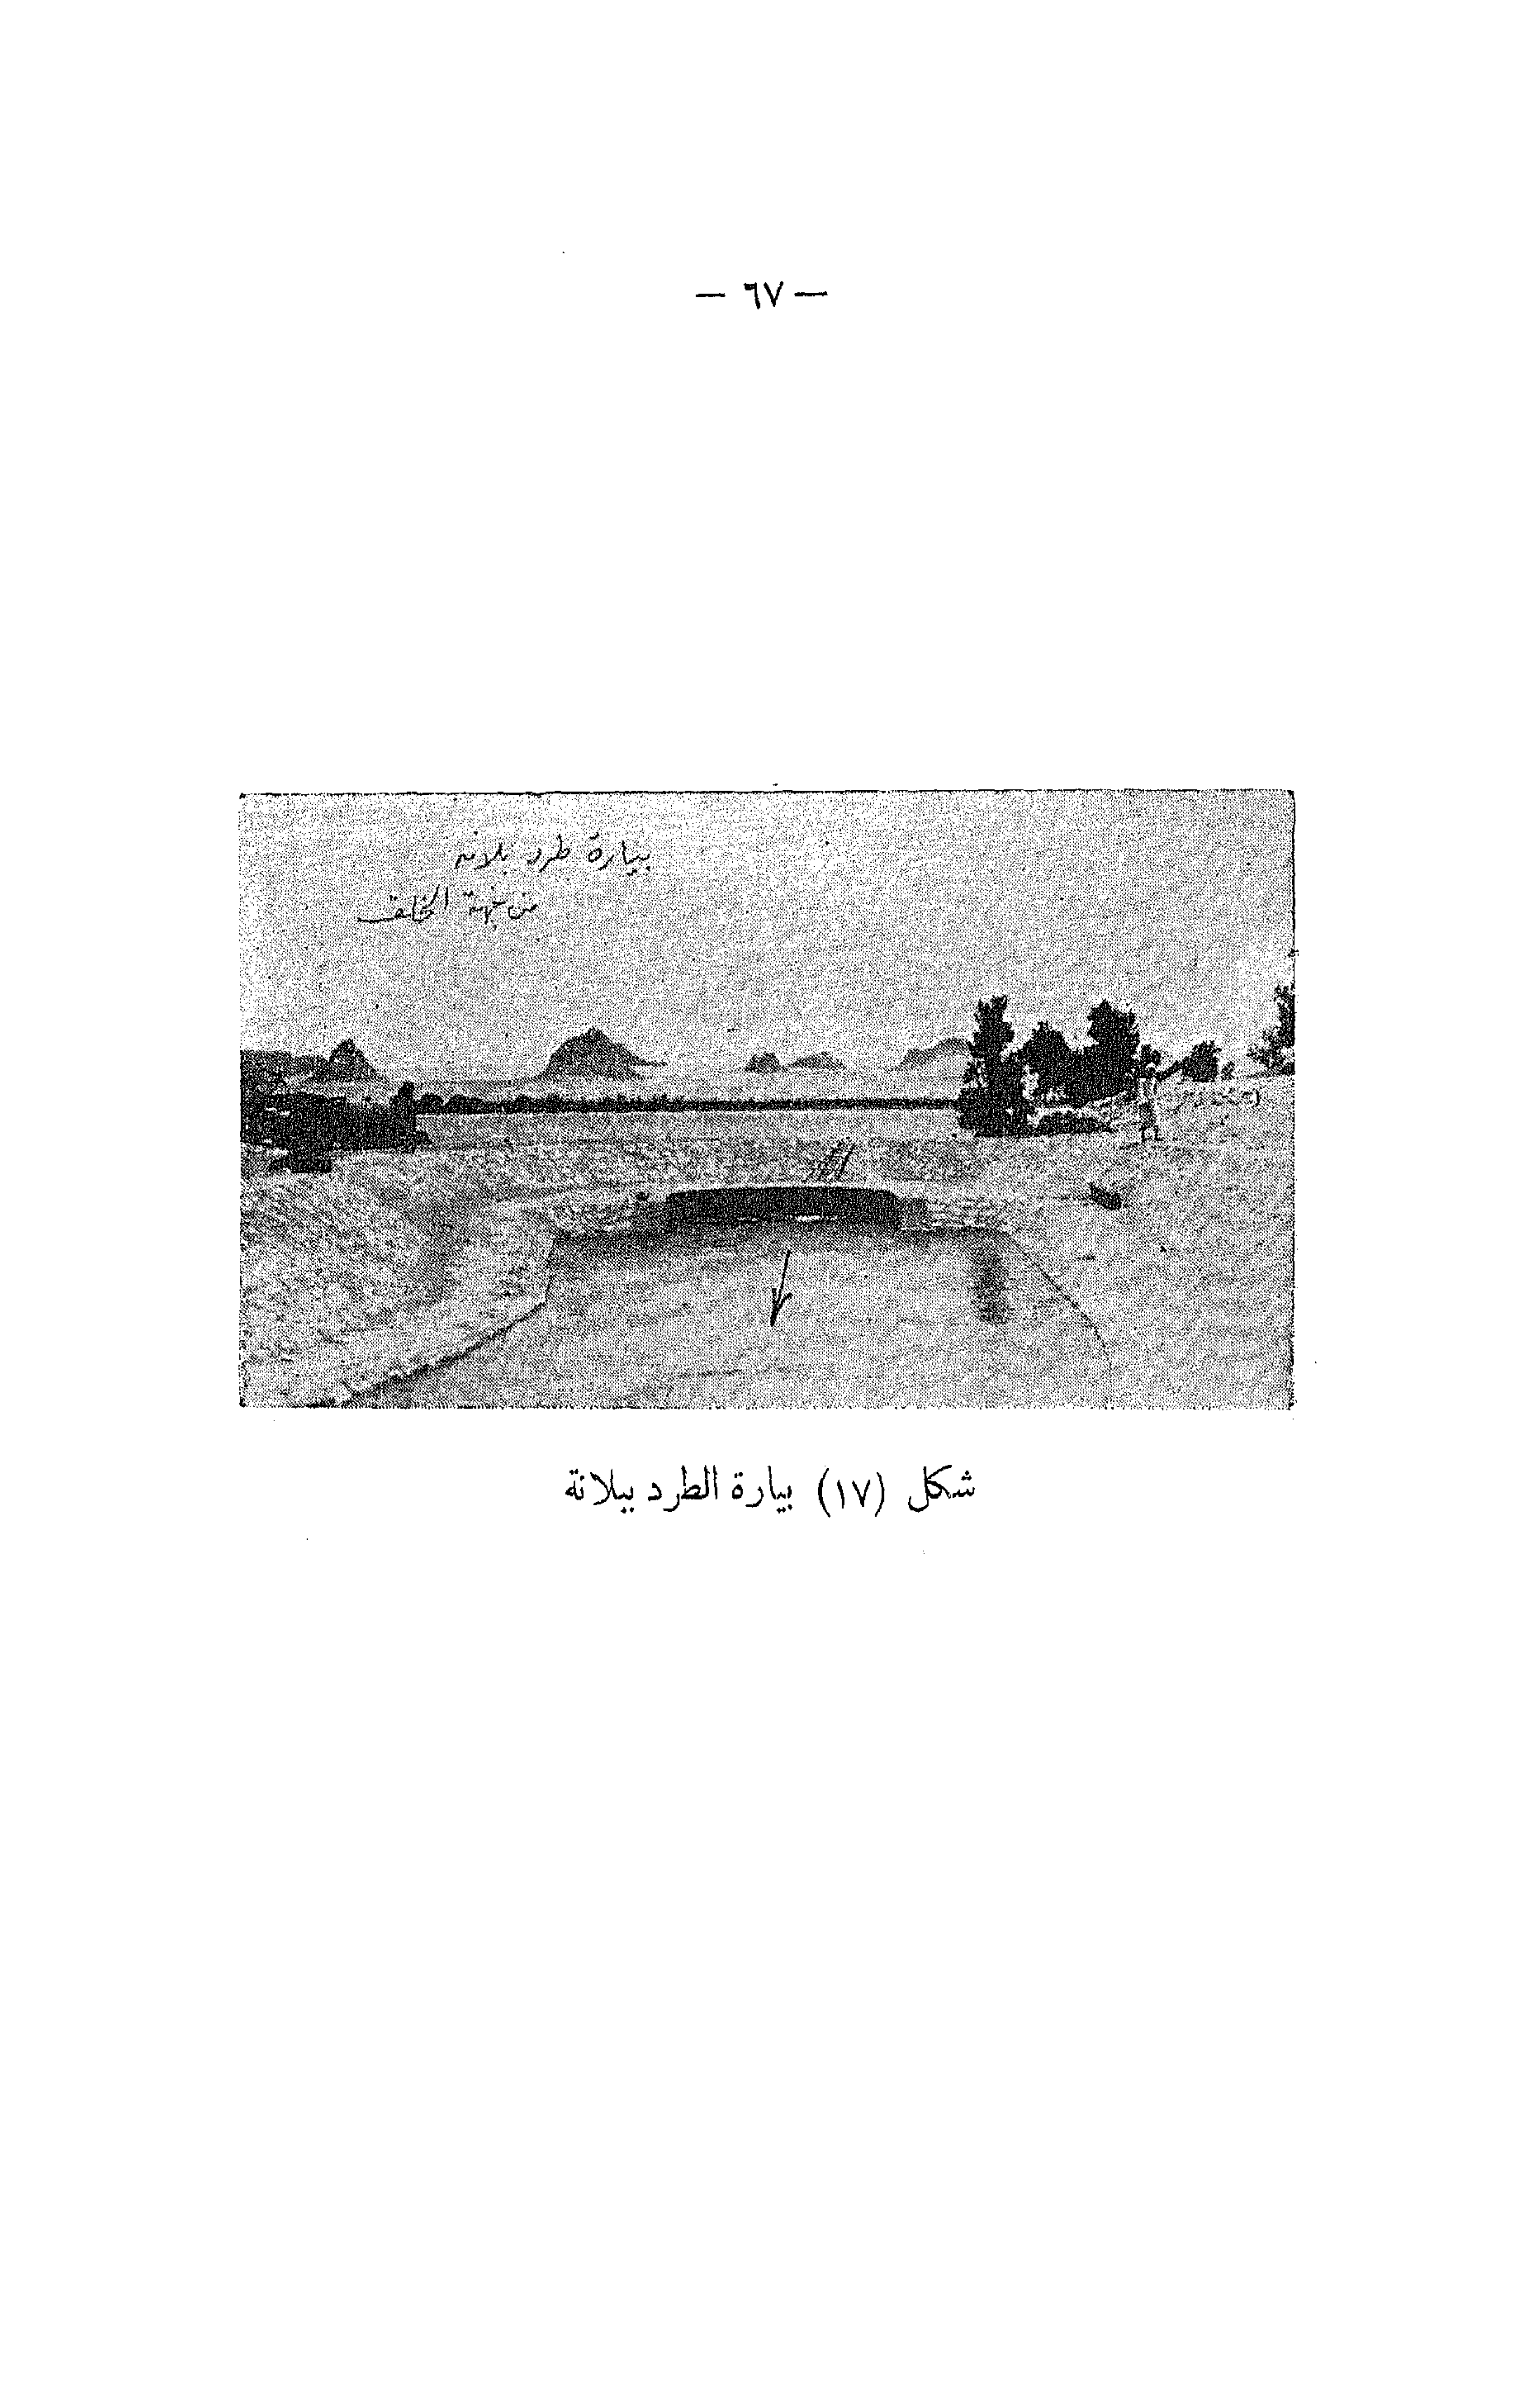 — ٦٧ —
بيارة طرد بلانه
من جهة الخلف
شكل (١٧) بيارة الطرد ببلانة